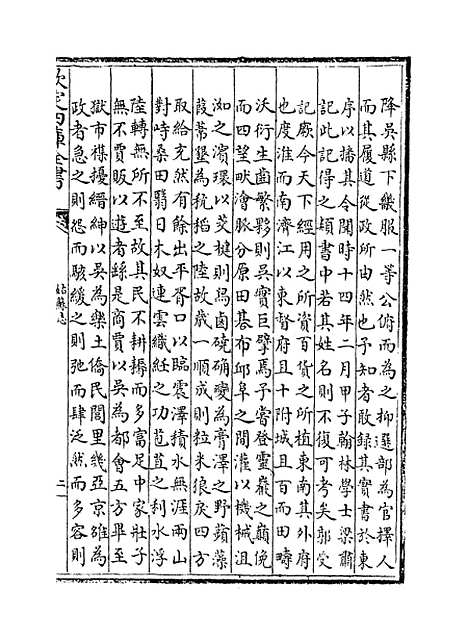 降吳縣下繳服一等公俯而為之抑選部為官擇人
而其履道從政所由然也予知者敢録其實書於東
序以播其令聞時十四年二月甲子翰林學士梁肅
記此記得之類書中若其姓名則不復可考矣郭受
記厥今天下經用之所資百貨之所植東南其外府
也度淮而南濟江以東督府且十附城且百而田疇
沃衍生齒繁夥則吳實巨擘焉予嘗登靈巖之巔俛
而四望畎澮脈分原田碁布邱阜之間灌以機械沮
洳之濱環以茭楗則舄鹵磽确變為膏澤之野蘋藻
葭菼墾為秔稻之陸故歲一順成則粒米狼戾四方
取給充然有餘出平胥口以臨震澤積水無涯兩山
對峙桑田翳日木奴連雲織紝之功苞苴之利水浮
陸轉無所不至故其民不耕耨而多富足中家壯子
無不賈販以遊者繇是商賈以吳為都會五方畢至
獄市襍擾縉紳以吳為樂土僑民閭里幾亞京雒為
政者急之則怨而駭緩之則弛而肆泛然而多容則
欽定四庫全書
姑蘇志
二